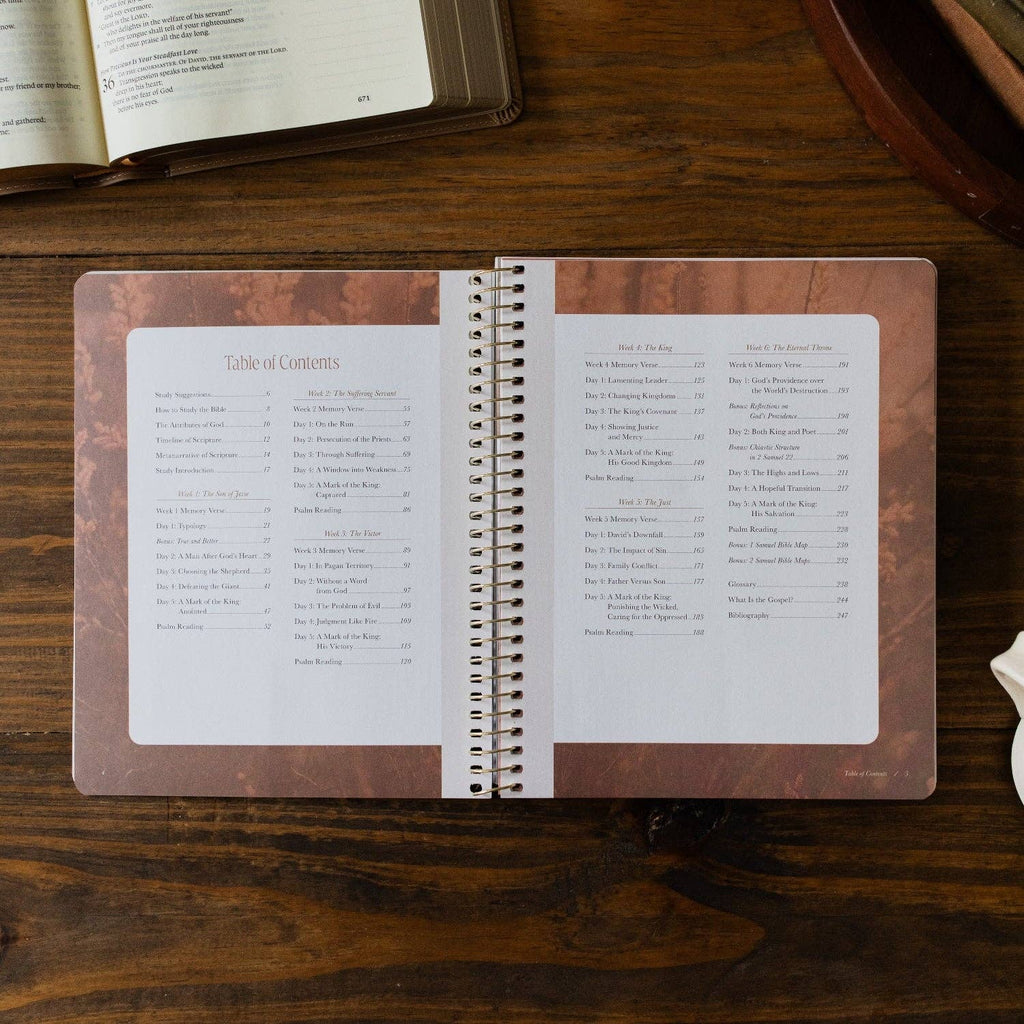 now.
est.
r my friend or my brother;
and gathered;
me;
and say evermore,
"Great is the LORD,
who delights in the welfare of his servant!"
Then my tongue shall tell of your righteousness
and of your praise all the day long.
Precious Is Your Steadfast Love
36 TO THE CHOIRMASTER. OF DAVID, THE SERVANT OF THE LORD.
Transgression speaks to the wicked
deep in his heart;
there is no fear of God
before his eyes.
671
Table of Contents
Study Suggestions 6
How to Study the Bible 8
The Attributes of God 10
Timeline of Scripture 12
Metanarrative of Scripture 14
Study Introduction 17
Week 1: The Son of Jesse
Week 1 Memory Verse 19
Day 1: Typology 21
Bonus: True and Better 27
Day 2: A Man After God's Heart 29
Day 3: Choosing the Shepherd 35
Day 4: Defeating the Giant 41
Day 5: A Mark of the King:
Anointed 47
Psalm Reading 52
Week 2: The Suffering Servant
Week 2 Memory Verse 55
Day 1: On the Run 57
Day 2: Persecution of the Priests 63
Day 3: Through Suffering 69
Day 4: A Window into Weakness 75
Day 5: A Mark of the King:
Captured 81
Psalm Reading 86
Week 3: The Victor
Week 3 Memory Verse 89
Day 1: In Pagan Territory 91
Day 2: Without a Word
from God 97
Day 3: The Problem of Evil 103
Day 4: Judgment Like Fire 109
Day 5: A Mark of the King:
His Victory 115
Psalm Reading 120
Week 4: The King
Week 4 Memory Verse 123
Day 1: Lamenting Leader 125
Day 2: Changing Kingdom 131
Day 3: The King's Covenant 137
Day 4: Showing Justice
and Mercy 143
Day 5: A Mark of the King:
His Good Kingdom 149
Psalm Reading 154
Week 5: The Just
Week 5 Memory Verse 157
Day 1: David's Downfall 159
Day 2: The Impact of Sin 165
Day 3: Family Conflict 171
Day 4: Father Versus Son 177
Day 5: A Mark of the King:
Punishing the Wicked,
Caring for the Oppressed 183
Psalm Reading 188
Week 6: The Eternal Throne
Week 6 Memory Verse 191
Day 1: God's Providence over
the World's Destruction 193
Bonus: Reflections on
God's Providence 198
Day 2: Both King and Poet 201
Bonus: Chiastic Structure
in 2 Samuel 22 206
Day 3: The Highs and Lows 211
Day 4: A Hopeful Transition 217
Day 5: A Mark of the King:
His Salvation 223
Psalm Reading 228
Bonus: 1 Samuel Bible Map 230
Bonus: 2 Samuel Bible Maps 232
Glossary 238
What Is the Gospel? 244
Bibliography 247
Table of Contents / 5